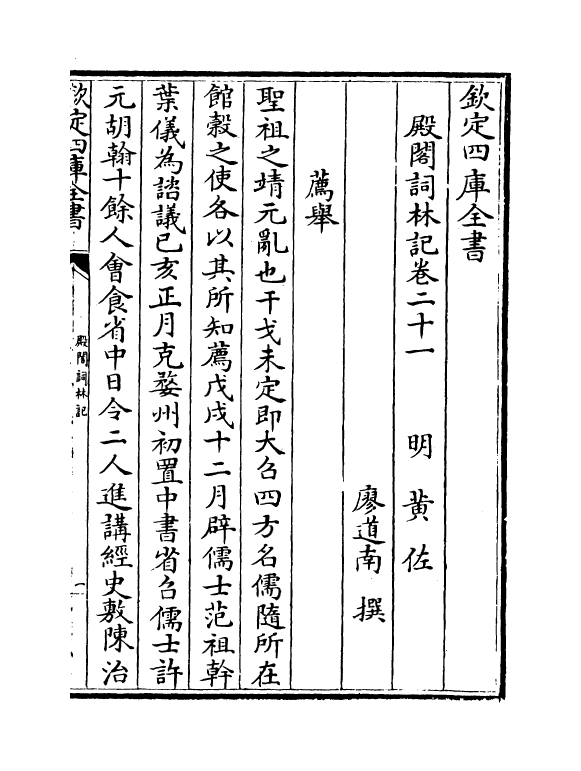 欽定四庫全書
殿閣詞林記卷二十一
明 黄佐
廖道南 撰
薦舉
聖祖之靖元亂也干戈未定即大召四方名儒隨所在
館穀之使各以其所知薦戊戌十二月辟儒士范祖幹
葉儀為諮議已亥正月克婺州初置中書省召儒士許
元胡翰十餘人會食省中日令二人進講經史敷陳治
欽定四庫全書
殿閣詞林記
一